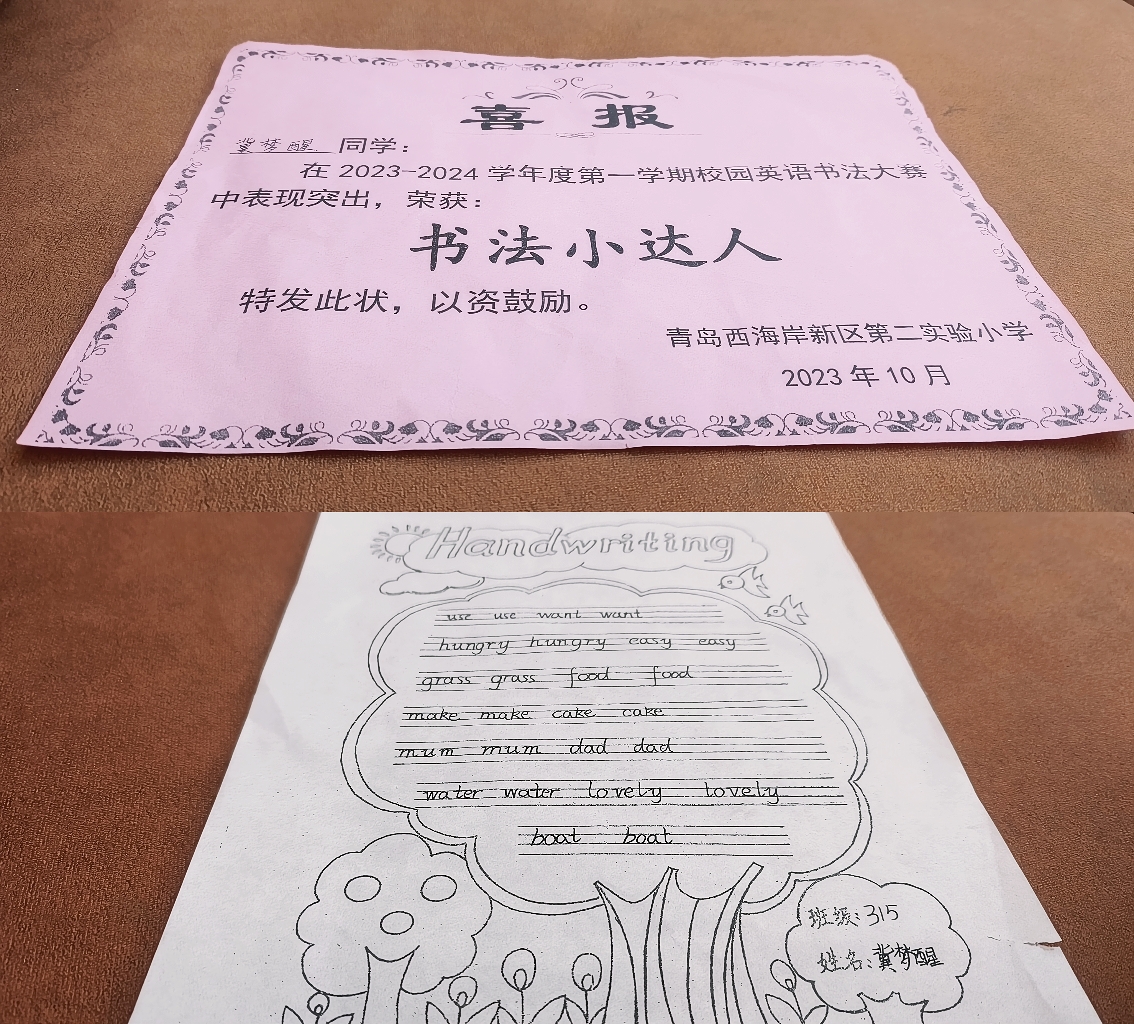 喜报
冀梦醒 同学：
在 2023-2024 学年度第一学期校园英语书法大赛
中表现突出，荣获：
书法小达人
特发此状，以资鼓励。
青岛西海岸新区第二实验小学
2023 年 10 月
Handwriting
use use want want
hungry hungry easy easy
grass grass food food
make make cake cake
mum mum dad dad
water water lovely lovely
boat boat
班级：315
姓名：冀梦醒